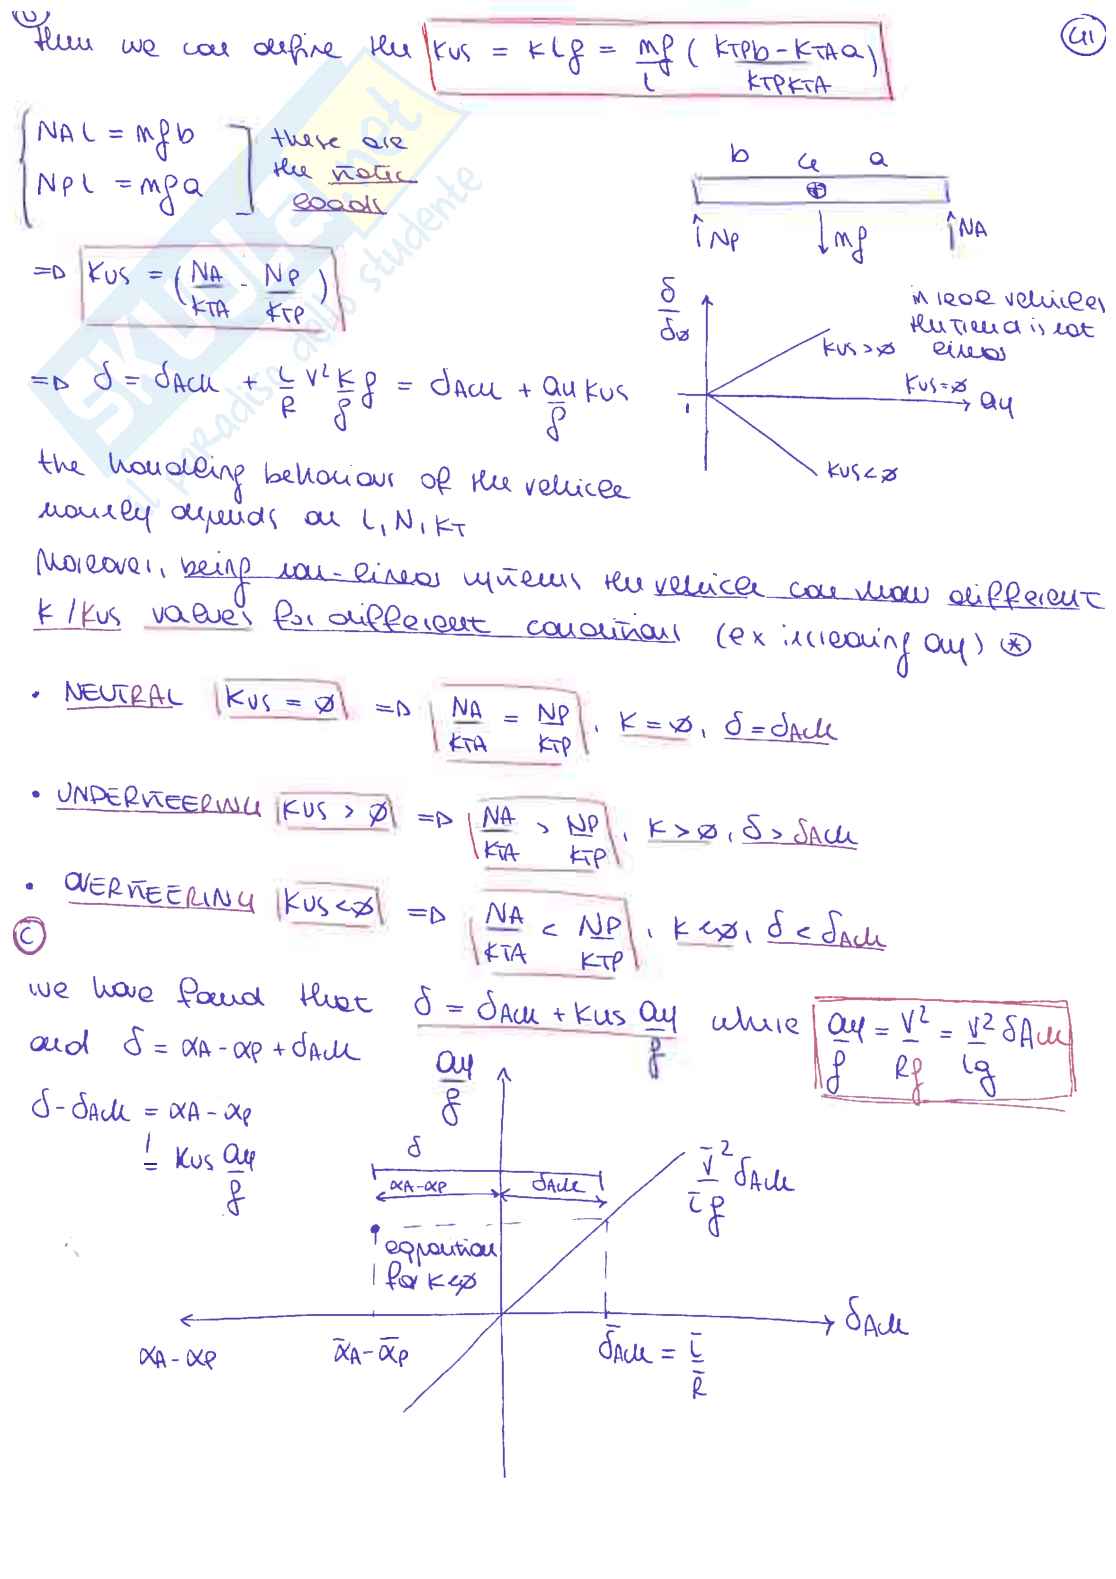 41
then we can define the KUS = K l g = mg/l ( (KTP b - KTA a) / (KTP KTA) )
NA l = mg b
NP l = mg a
these are
the static
loads
b CG a
NP mg NA
=> KUS = ( NA/KTA - NP/KTP )
δ/δ0
in real vehicles
the trend is not
linear
KUS > ∅
KUS = ∅
1
ay
KUS < ∅
=> δ = δAck + l/R + V² K/g g = δAck + ay/g KUS
the handling behaviour of the vehicle
mainly depends on l, N, KT
Moreover, being non-linear systems the vehicle can show different
K / KUS values for different conditions (ex increasing ay) *
• NEUTRAL KUS = ∅ => NA/KTA = NP/KTP, K = ∅, δ = δAck
• UNDERSTEERING KUS > ∅ => NA/KTA > NP/KTP, K > ∅, δ > δAck
• OVERSTEERING KUS < ∅ => NA/KTA < NP/KTP, K < ∅, δ < δAck
C
we have found that δ = δAck + KUS ay/g where ay/g = V²/Rg = V²/lg δAck
and δ = αA - αP + δAck
δ - δAck = αA - αP
! = KUS ay/g
ay/g
δ
αA - αP
δAck
V̄²/l̄g δAck
equation
for K < ∅
αA - αP
ᾱA - ᾱP
δ̄Ack = l̄/R̄
δAck
SKUOLA.net
il paradiso dello studente